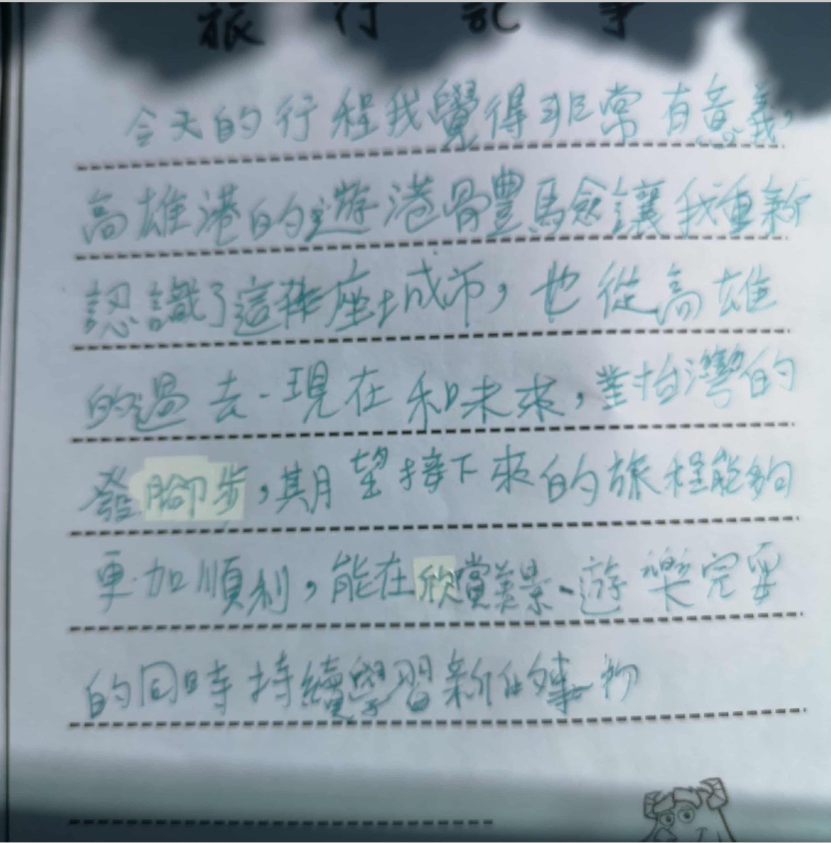 旅行記事
今天的行程我覺得非常有意義,
高雄港的遊港體驗讓我重新
認識了這座城市,也從高雄
的過去、現在和未來,對台灣的
發腳步,期望接下來的旅程能夠
更加順利,能在欣賞美景、遊樂完耍
的同時持續學習新的事物